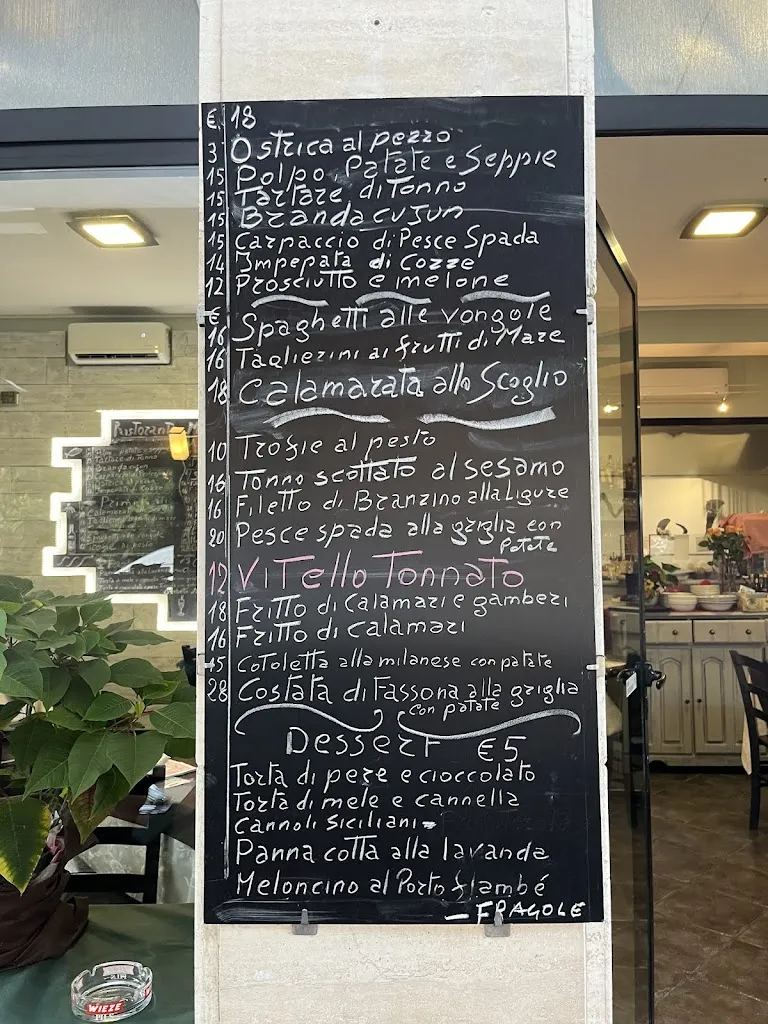 € 18
3 Ostrica al pezzo
15 Polpo, Patate e Seppie
15 Tartare di Tonno
15 Branda cujun
15 Carpaccio di Pesce Spada
14 Impepata di Cozze
12 Prosciutto e melone
€
16 Spaghetti alle vongole
16 Taglierini ai frutti di Mare
18 Calamarata allo Scoglio
10 Trofie al pesto
16 Tonno scottato al sesamo
16 Filetto di Branzino alla Ligure
20 Pesce spada alla griglia con
Patate
12 Vitello Tonnato
18 Fritto di Calamari e gamberi
16 Fritto di calamari
15 Cotoletta alla milanese con patate
28 Costata di Fassona alla griglia
con patate
Dessert €5
Torta di pere e cioccolato
Torta di mele e cannella
Cannoli Siciliani
Panna cotta alla lavanda
Meloncino al Porto flambé
- FRAGOLE
WIEZE